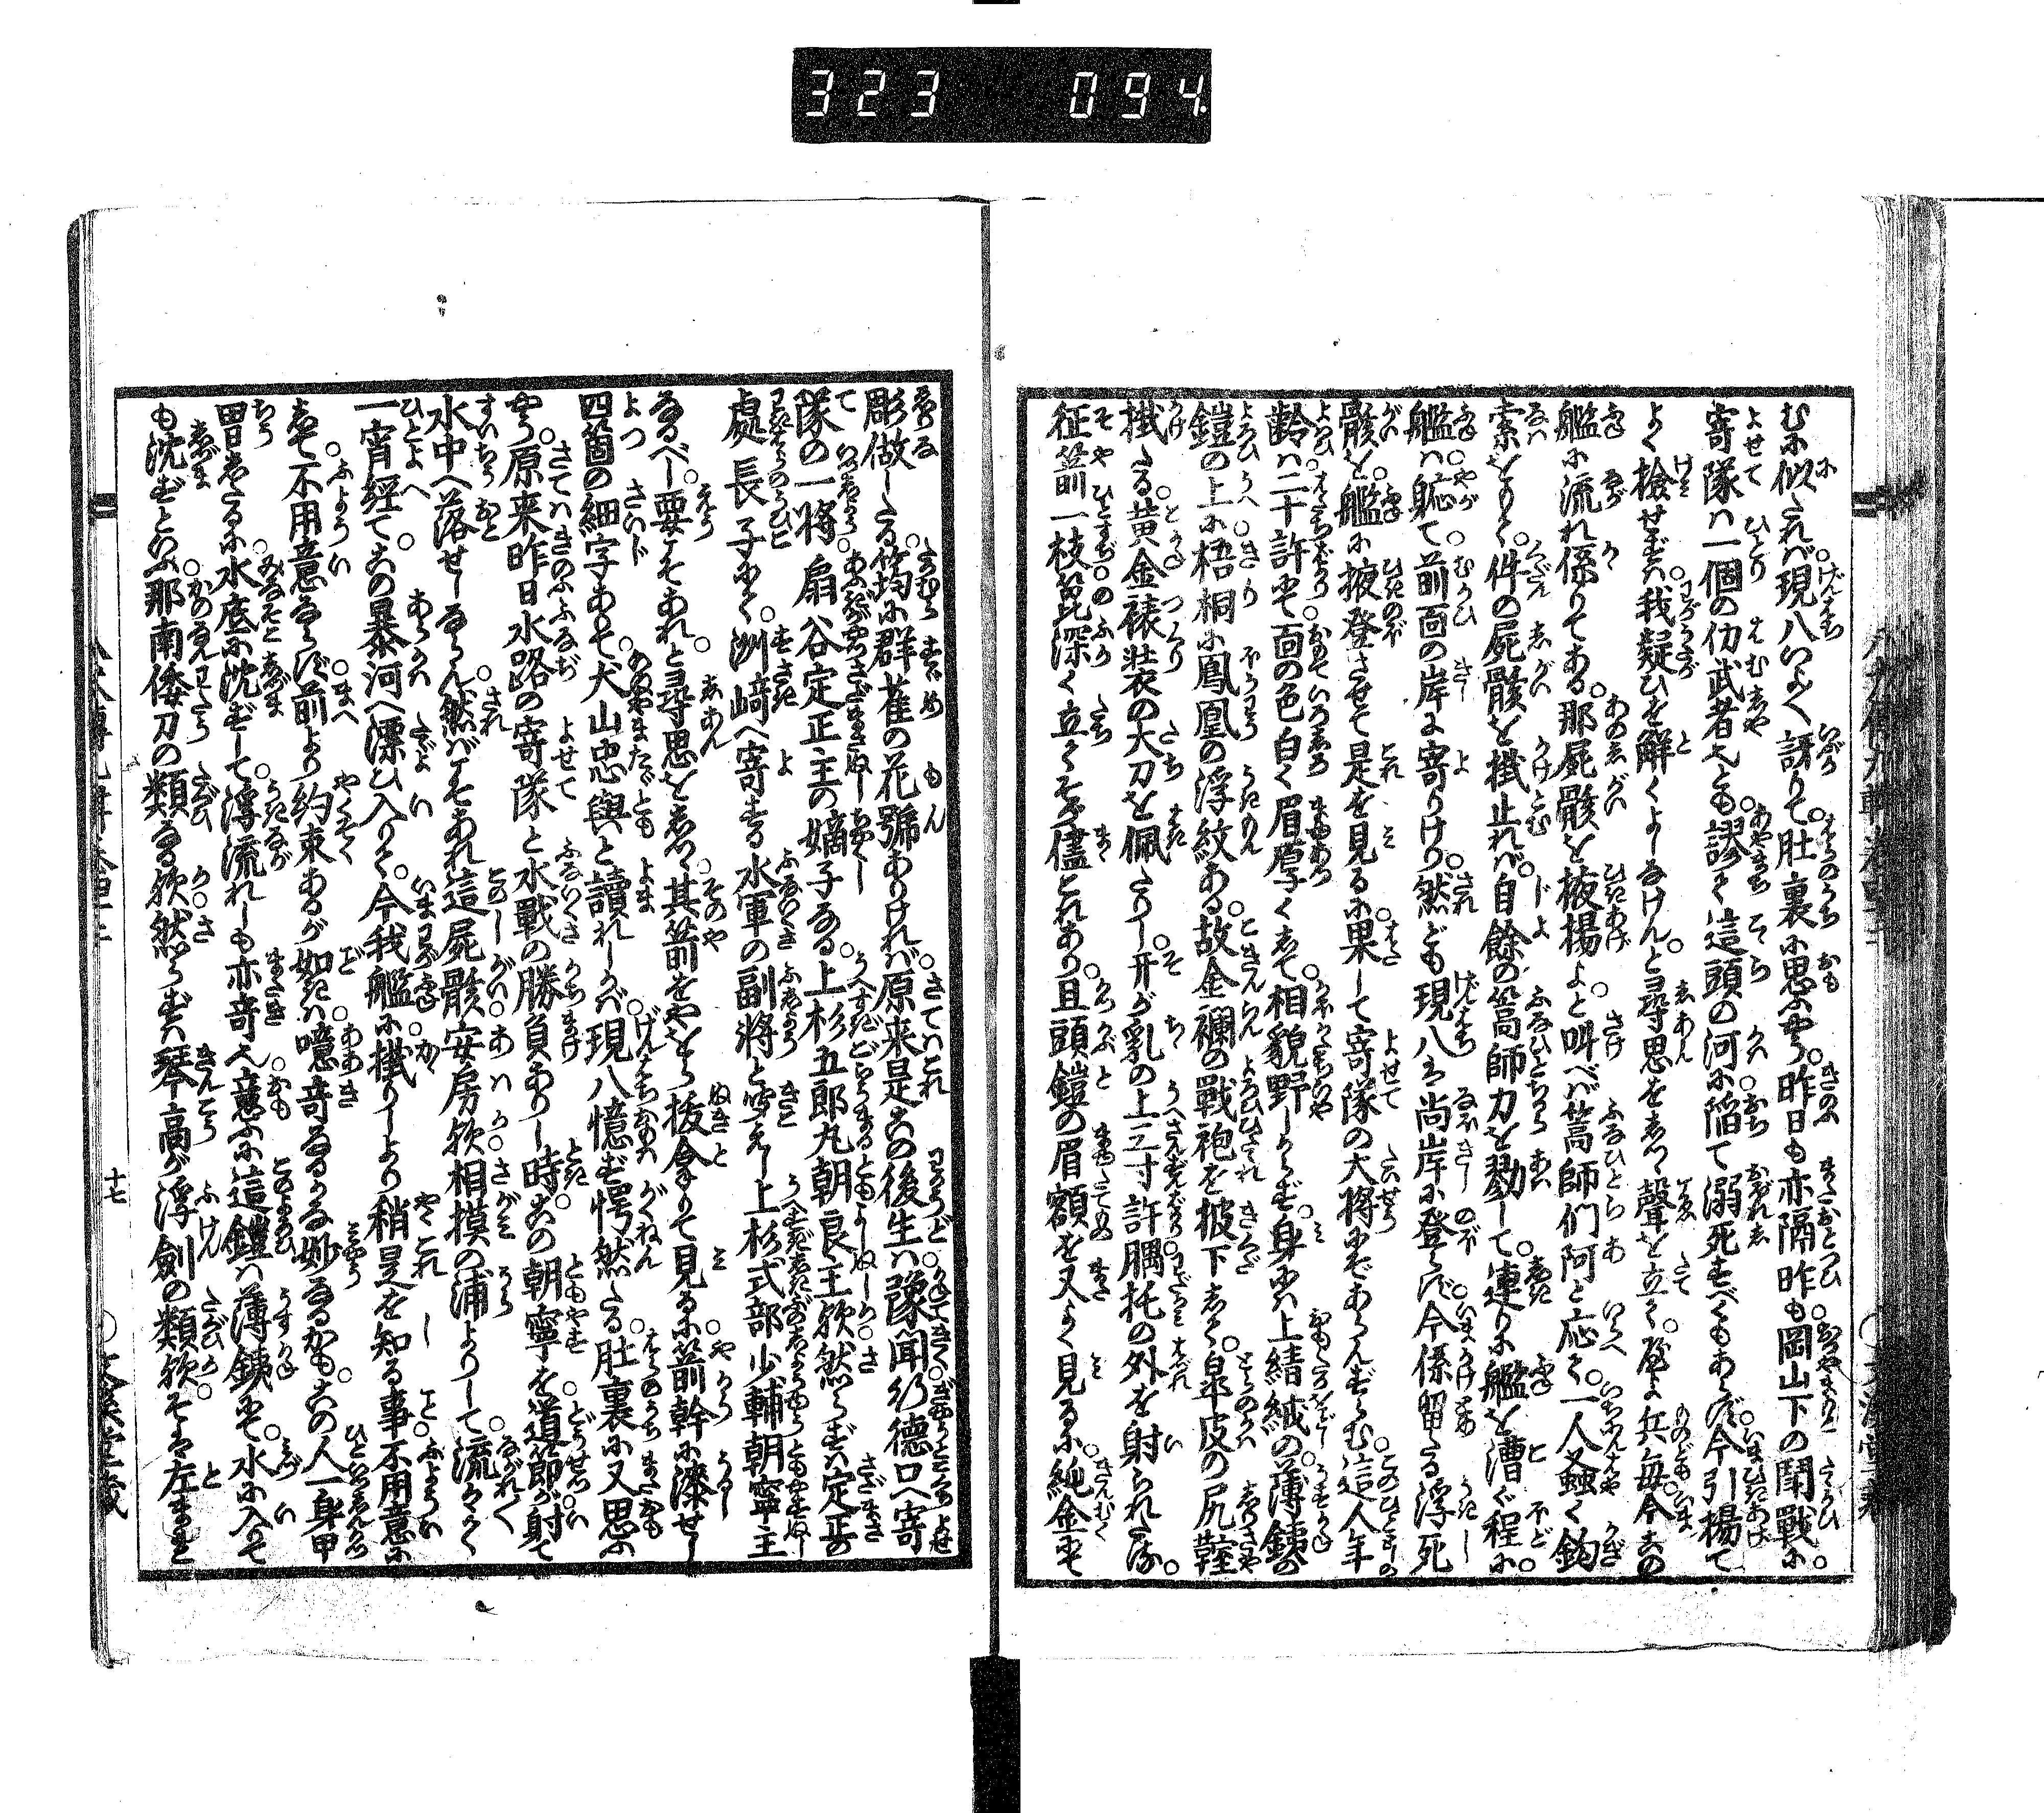 323 094
むに似たれば現八いよゝ訝りて肚裏に思ふやう昨日も亦隔昨も岡山下の鬪戰に
寄隊は一個の仂武者也とも謬て這頭の河に陷て溺死すべくもあらず今引揚て
よく檢せずは我疑ひを解くよしなけんと尋思をしつゝ聲を立てゝ兵毎今この
艦に流れ係りてある那屍骸を掖揚よと叫べば篙師們阿と応て一人蝨く鈎
索をとりて件の屍骸を掛止れば自餘の篙師力を勠して連りに艦を漕ぐ程に
艦は軈て前面の岸に寄りけり然ども現八は尚岸に登らず今係留たる浮死
骸を艦に掖登させて是を見るに果して寄隊の大將にぞあらんずらむ這人年
齡は二十許にて面の色白く眉厚くして相貌野しからず身には上綪絨の薄鐵の
鎧の上に梧桐に鳳凰の浮紋ある故金襴の戰袍を披下して皐皮の尻鞘
掛たる黄金裱装の大刀を佩たりし开が乳の上三寸許𦝫托の外を射られたる
征箭一枝箆深く立てその儘これあり且頭鎧の眉額を又よく見るに純金にて
彫做したる筠に群雀の花號ありければ原来是この後生は豫聞行德口へ寄
隊の一將扇谷定正主の嫡子なる上杉五郎丸朝良主欤然らずは定正の
處長子にて洲﨑へ寄する水軍の副將と聞えし上杉式部少輔朝寧主
なるべし要こそあれと尋思をしつゝ其箭をやをら抜拿りて見るに箭幹に漆せし
四箇の細字ありて犬山忠與と讀れしかば現八憶ず愕然たる肚裏に又思ふ
やう原来昨日水路の寄隊と水戰の勝負ありし時この朝寧を道節が射て
水中へ落せしならん然ばこそあれ這屍骸安房欤相摸の浦よりして流々て
一宵經てこの暴河へ漂ひ入りて今我艦に掛りしより稍是を知る事不用意に
して不用意ならず前より約束あるが如きは噫奇なるかな妙なるかもこの人一身甲
冑したるに水底に沈ずして浮流れしも亦奇也意ふに這鎧は薄鐵にて水に入ても
も沈ずといふ那南倭刀の類なる欤然らずは琴高が浮劍の類欤そは左まれと
十七